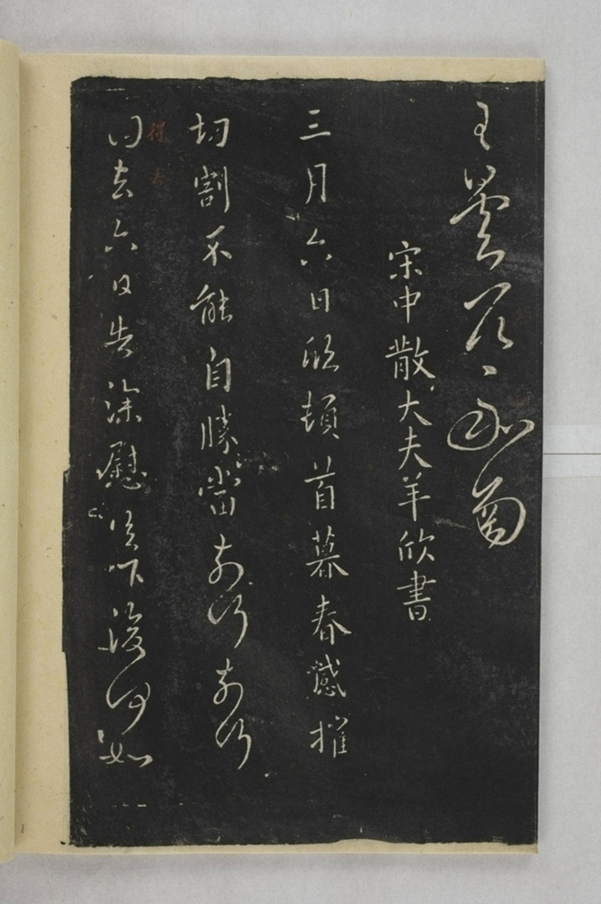 王曇
宋中散大夫羊欣書
三月六日欣頓首暮春感摧
切割不能自勝當奈何奈何
得去六日告深慰足下復何如